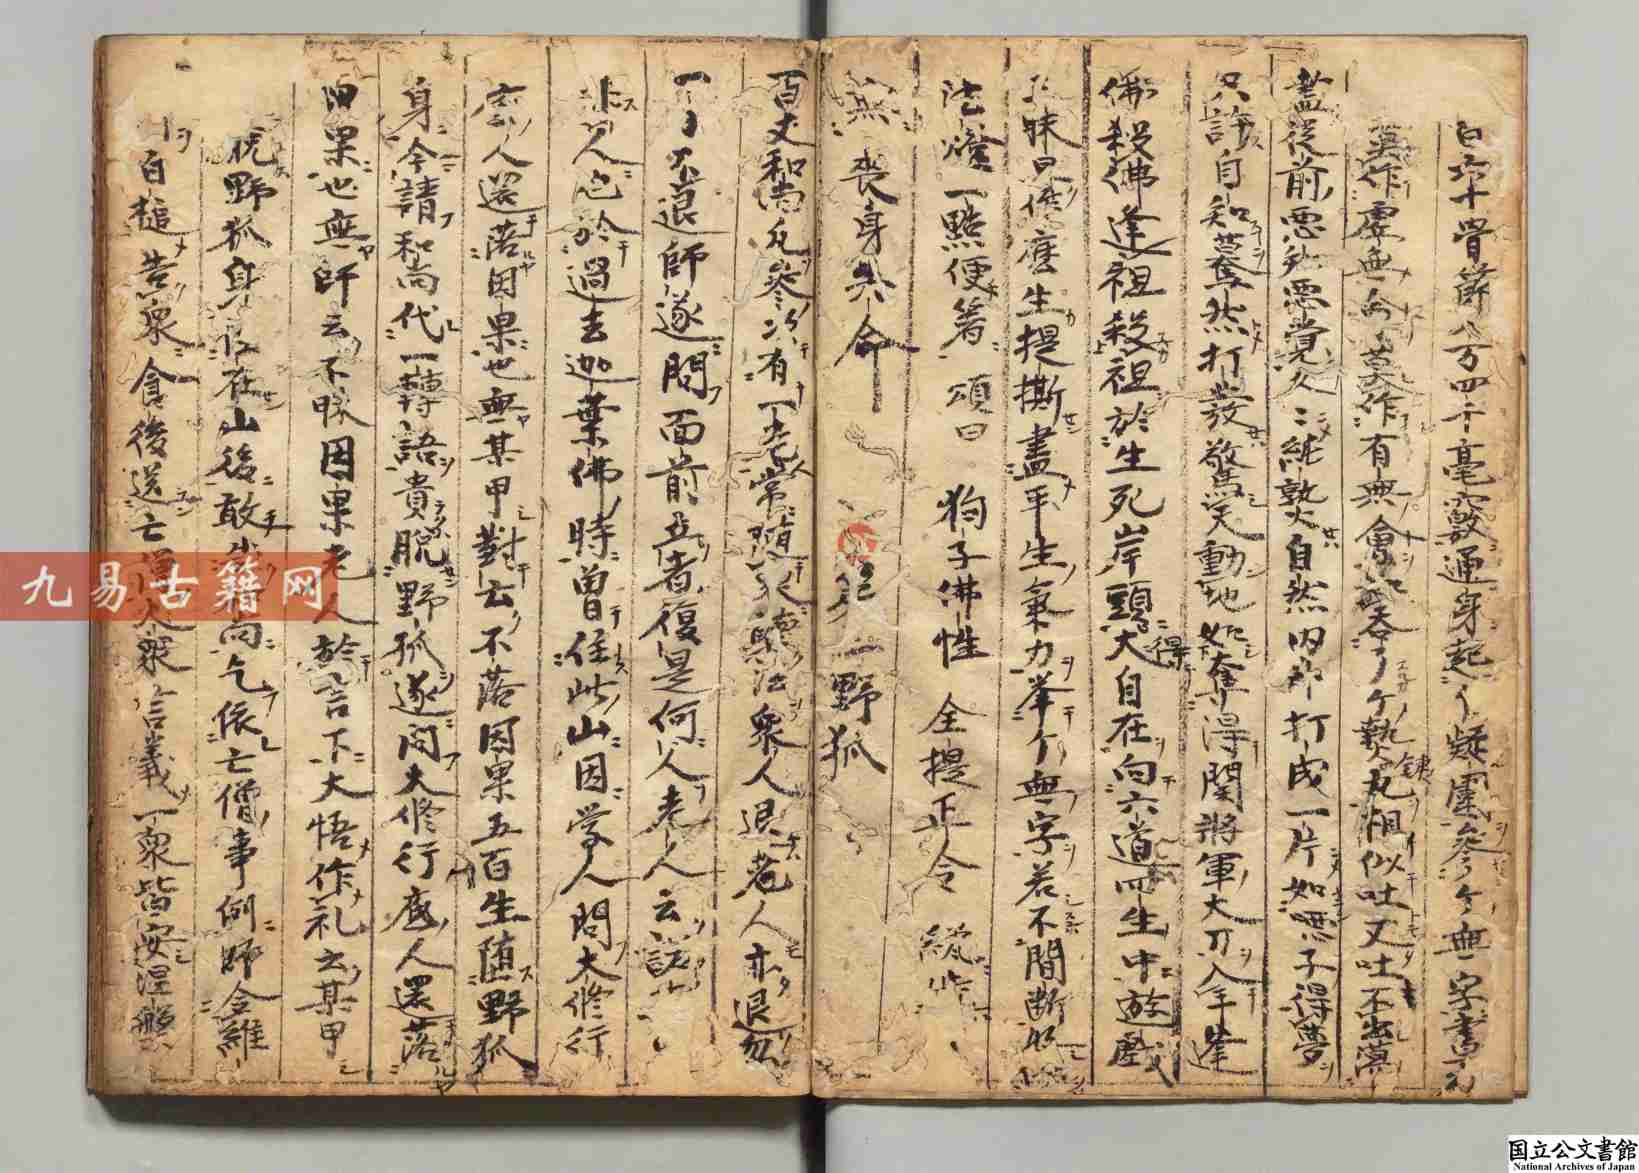 百六十骨節八万四千毫竅通身起个疑團参个無字書夜
莫作虚無會莫作有無會如吞了个熱鉄丸相似吐又吐不出蕩
盡従前悪知悪覚久〻純熟自然内外打成一片如啞子得夢
只許自知驀然打發驚天動地如奪得関将軍大刀入手逢
佛殺佛逢祖殺祖於生死岸頭得大自在向六道四生中遊戯
三昧且作麼生提撕盡平生氣力挙个無字若不間断好
法燈一點便著 頌曰 狗子佛性 全提正令 纔
無 喪身失命
二 野狐
百丈和尚凡参次有一老人常随衆聴法衆人退老人亦退忽
一日不退師遂問面前立者復是何人老人云諾
非人也於過去迦葉佛時曽住此山因学人問大修行
底人還落因果也無某甲對云不落因果五百生堕野狐
身今請和尚代一轉語貴脱野狐遂问大修行底人還落
因果也無師云不昧因果老人於言下大悟作礼云某甲
脱野狐身 在山後敢 和尚乞依亡僧事例師令維
白槌告衆食後送亡僧大衆言議一衆皆安涅槃
九易古籍网
国立公文書館
National Archives of Japan